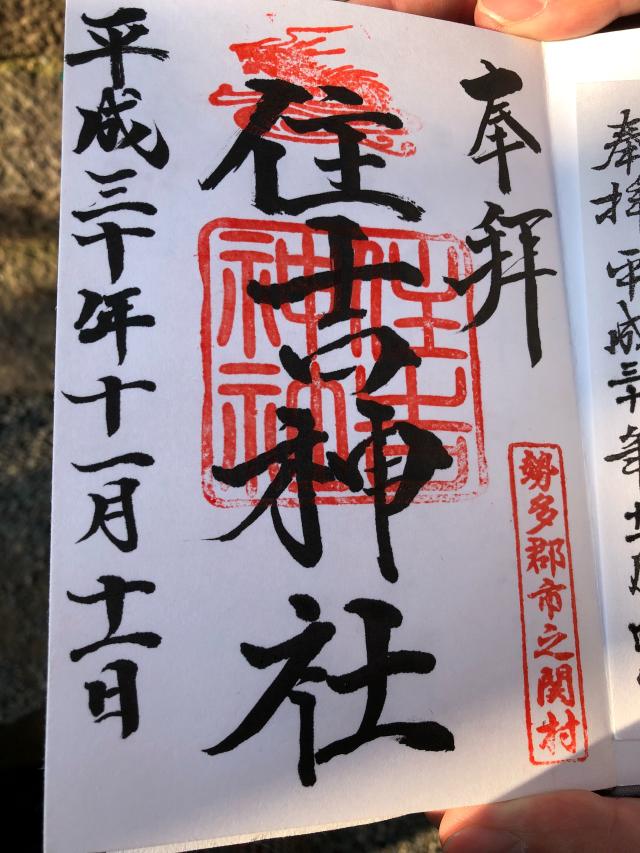 奉拝 平成三十年十一月
奉拝
勢多郡市之関村
住吉神社
住吉
神社
平成三十年十一月十一日